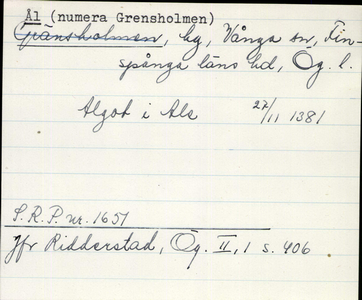 Ål (numera Grensholmen)
Gränsholmen, by, Vånga sn, Fin-
spånga läns hd, Ög. l.
Algot i Als 27/11 1381
S.R.P. nr. 1651
Jfr Ridderstad, Ög. II,1 s. 406